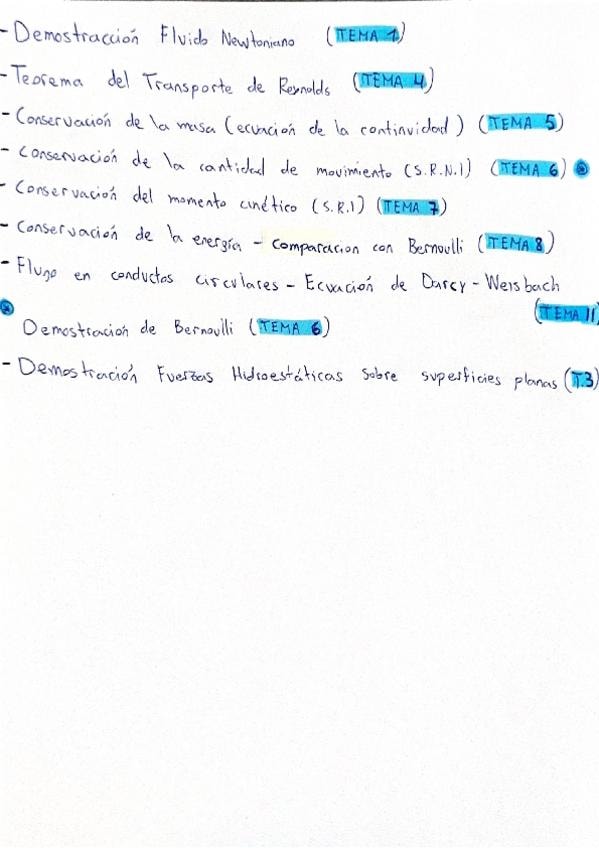 - Demostracción Fluido Newtoniano (TEMA 1)
- Teorema del Transporte de Reynolds (TEMA 4)
- Conservación de la masa (ecuación de la continuidad) (TEMA 5)
- Conservación de la cantidad de movimiento (S.R.N.I) (TEMA 6)
- Conservación del momento cinético (S.R.I) (TEMA 7)
- Conservación de la energía - Comparacion con Bernoulli (TEMA 8)
- Flujo en conductos circulares - Ecuación de Darcy - Weisbach
(TEMA 11)
Demostracion de Bernoulli (TEMA 6)
- Demostración Fuerzas Hidroestáticas sobre superficies planas (T.3)